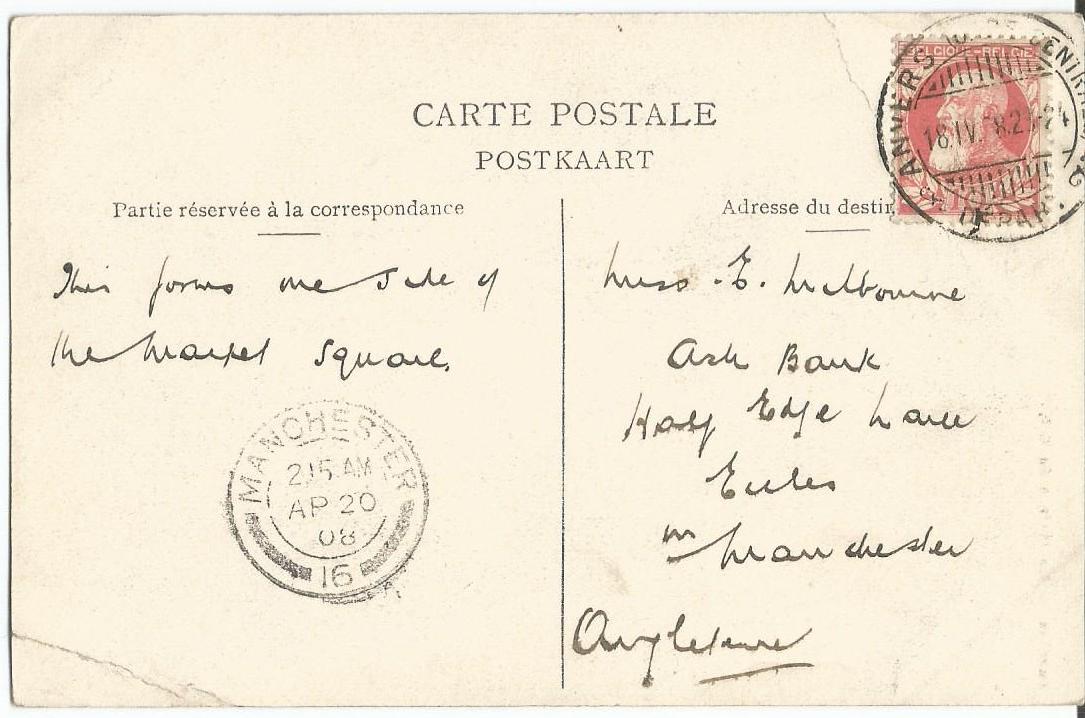 CARTE POSTALE
POSTKAART
Partie réservée à la correspondance
Adresse du destin
This forms one side of
the Market Square.
Miss. E. Melbourne
Ash Bank
Half Edge Lane
Eccles
nr Manchester
Angleterre
BELGIQUE-BELGIE
ANVERS CENTRAL
18.IV. 8.21-24
DEPART
MANCHESTER
2.15 AM
AP 20
08
16